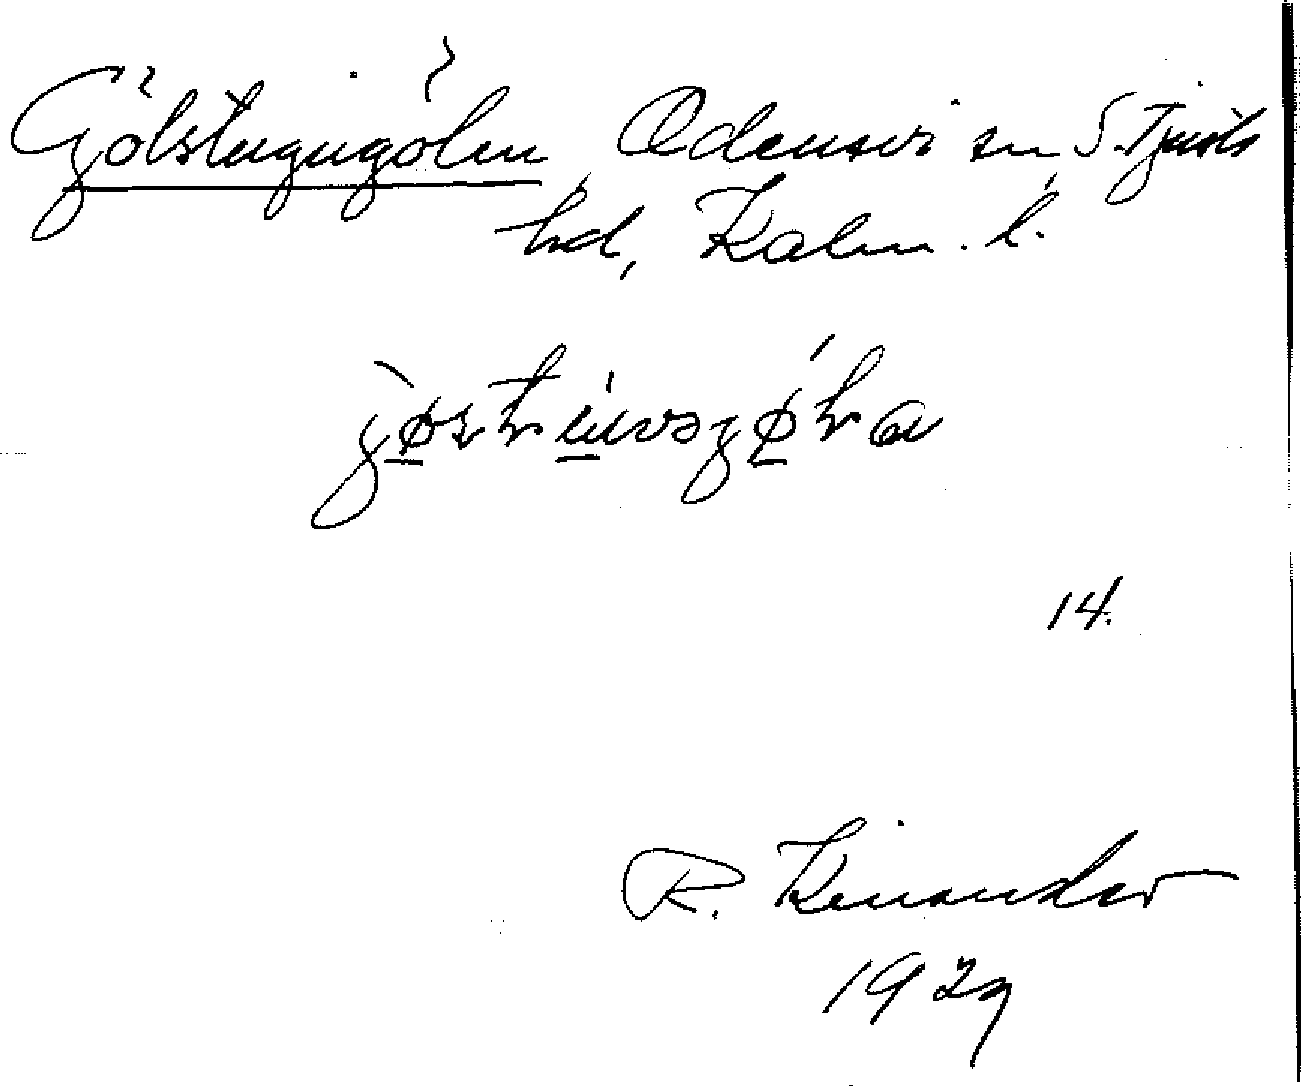 Gölstugugölen Odensvi sn S. Tjusts
hd, Kalm. l.
14.
R. Kinander
1929